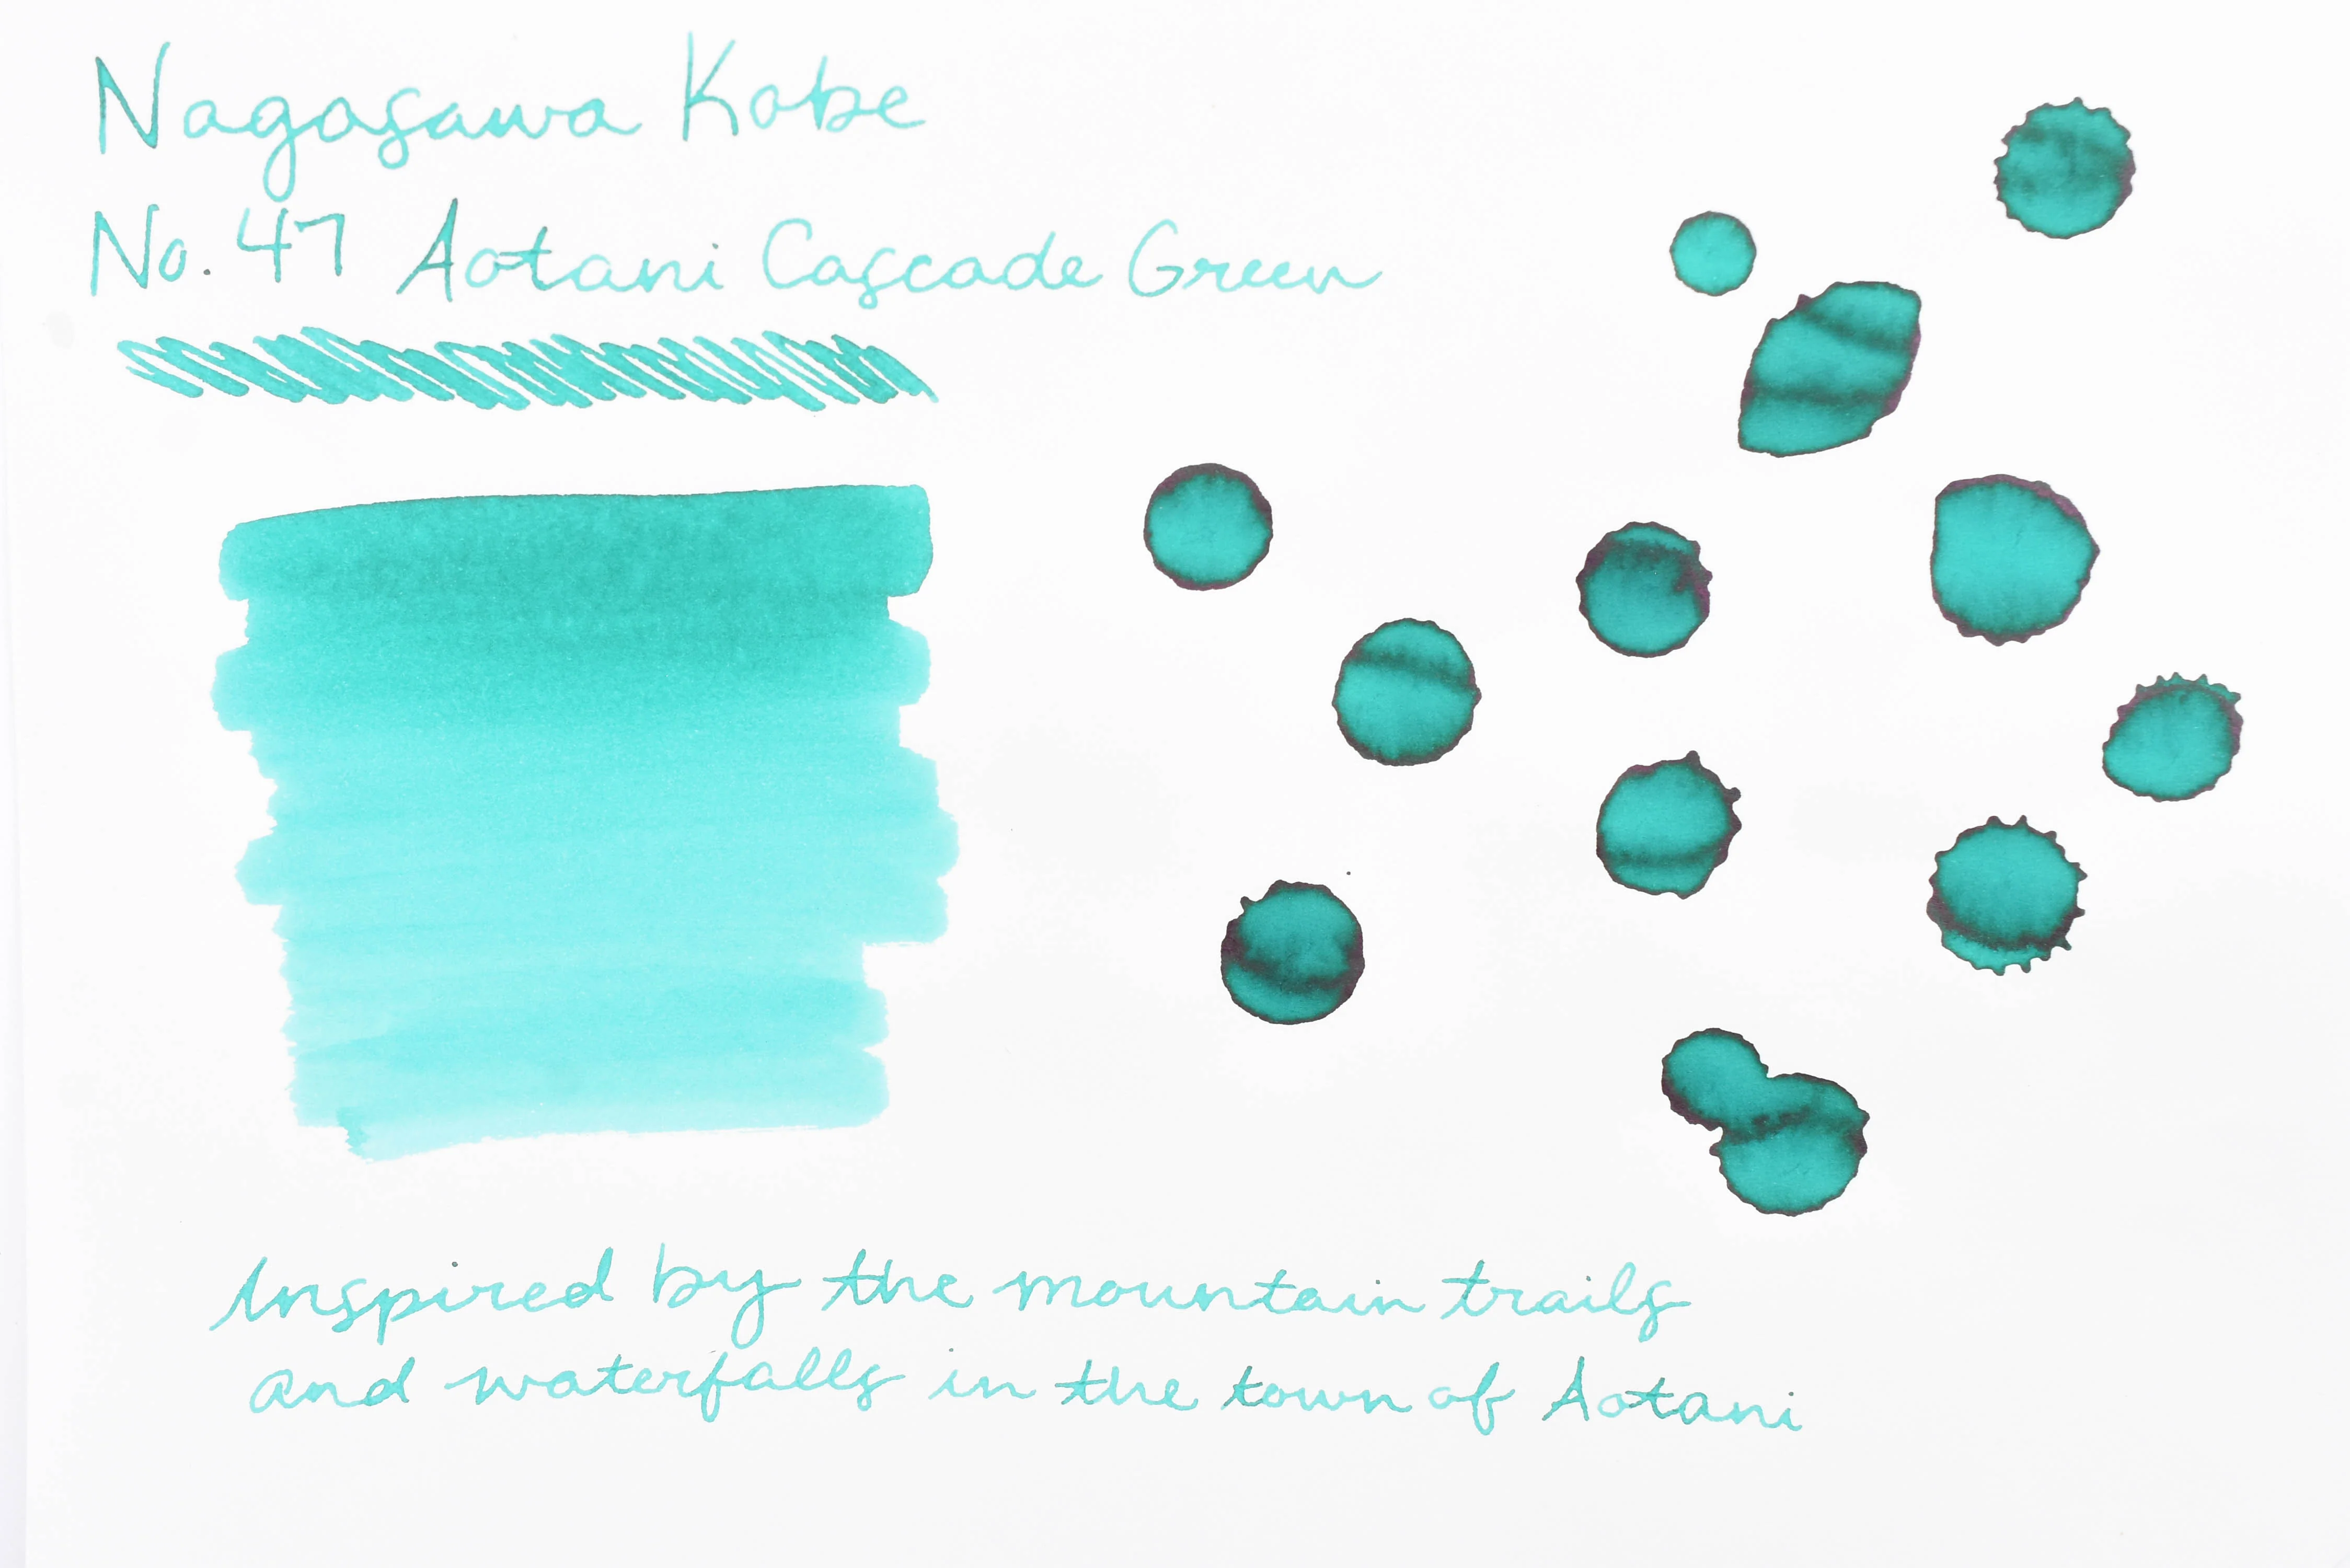 Nagasawa Kobe
No. 47 Aotani Cascade Green
Inspired by the mountain trails
and waterfalls in the town of Aotani